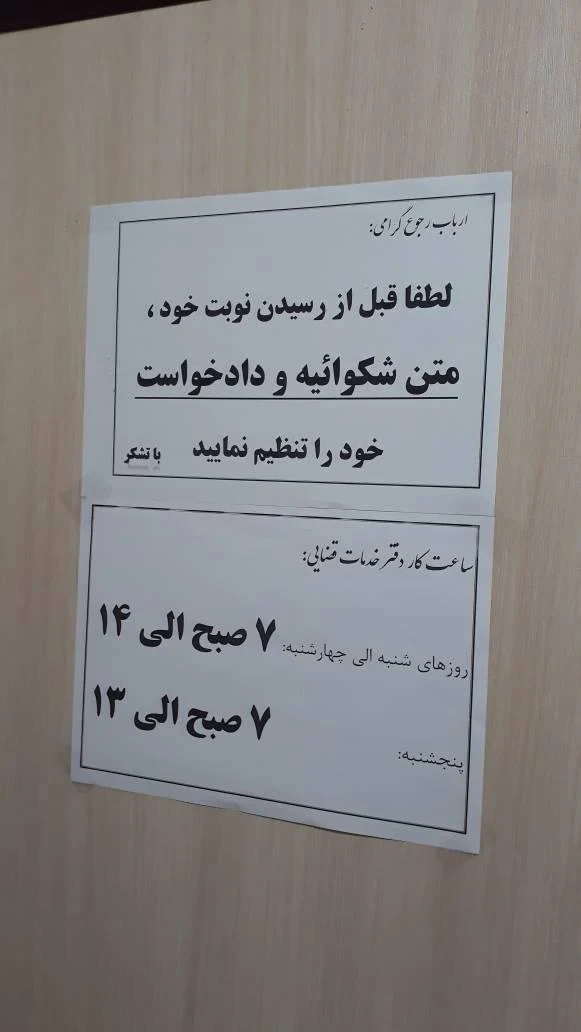 ارباب رجوع گرامی:
لطفا قبل از رسیدن نوبت خود ،
متن شکوائیه و دادخواست
خود را تنظیم نمایید با تشکر
ساعت کار دفتر خدمات قضایی:
روزهای شنبه الی چهارشنبه: ۷ صبح الی ۱۴
پنجشنبه: ۷ صبح الی ۱۳